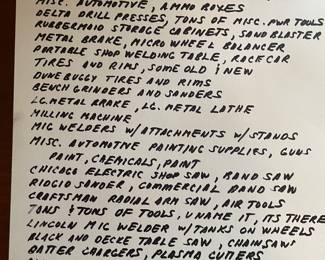 MISC. AUTOMOTIVE, AMMO BOXES
DELTA DRILL PRESSES, TONS OF MISC. PWR TOOLS
RUBBERMAID STORAGE CABINETS, SANDBLASTER
METAL BRAKE, MICRO WHEEL BALANCER
PORTABLE SHOP WELDING TABLE, RACECAR
TIRES AND RIMS, SOME OLD & NEW
DUNEBUGGY TIRES AND RIMS
BENCH GRINDERS AND SANDERS
LG. METAL BRAKE, LG. METAL LATHE
MILLING MACHINE
MIG WELDERS W/ATTACHMENTS W/STANDS
MISC. AUTOMOTIVE PAINTING SUPPLIES, GUNS
PAINT, CHEMICALS, PAINT
CHICAGO ELECTRIC SHOP SAW, BAND SAW
RIDGID SANDER, COMMERCIAL BAND SAW
CRAFTSMAN RADIAL ARM SAW, AIR TOOLS
TONS & TONS OF TOOLS, U NAME IT, ITS THERE
LINCOLN MIG WELDER W/TANKS ON WHEELS
BLACK AND DECKE TABLE SAW, CHAINSAWS
BATTER CHARGERS, PLASMA CUTTERS